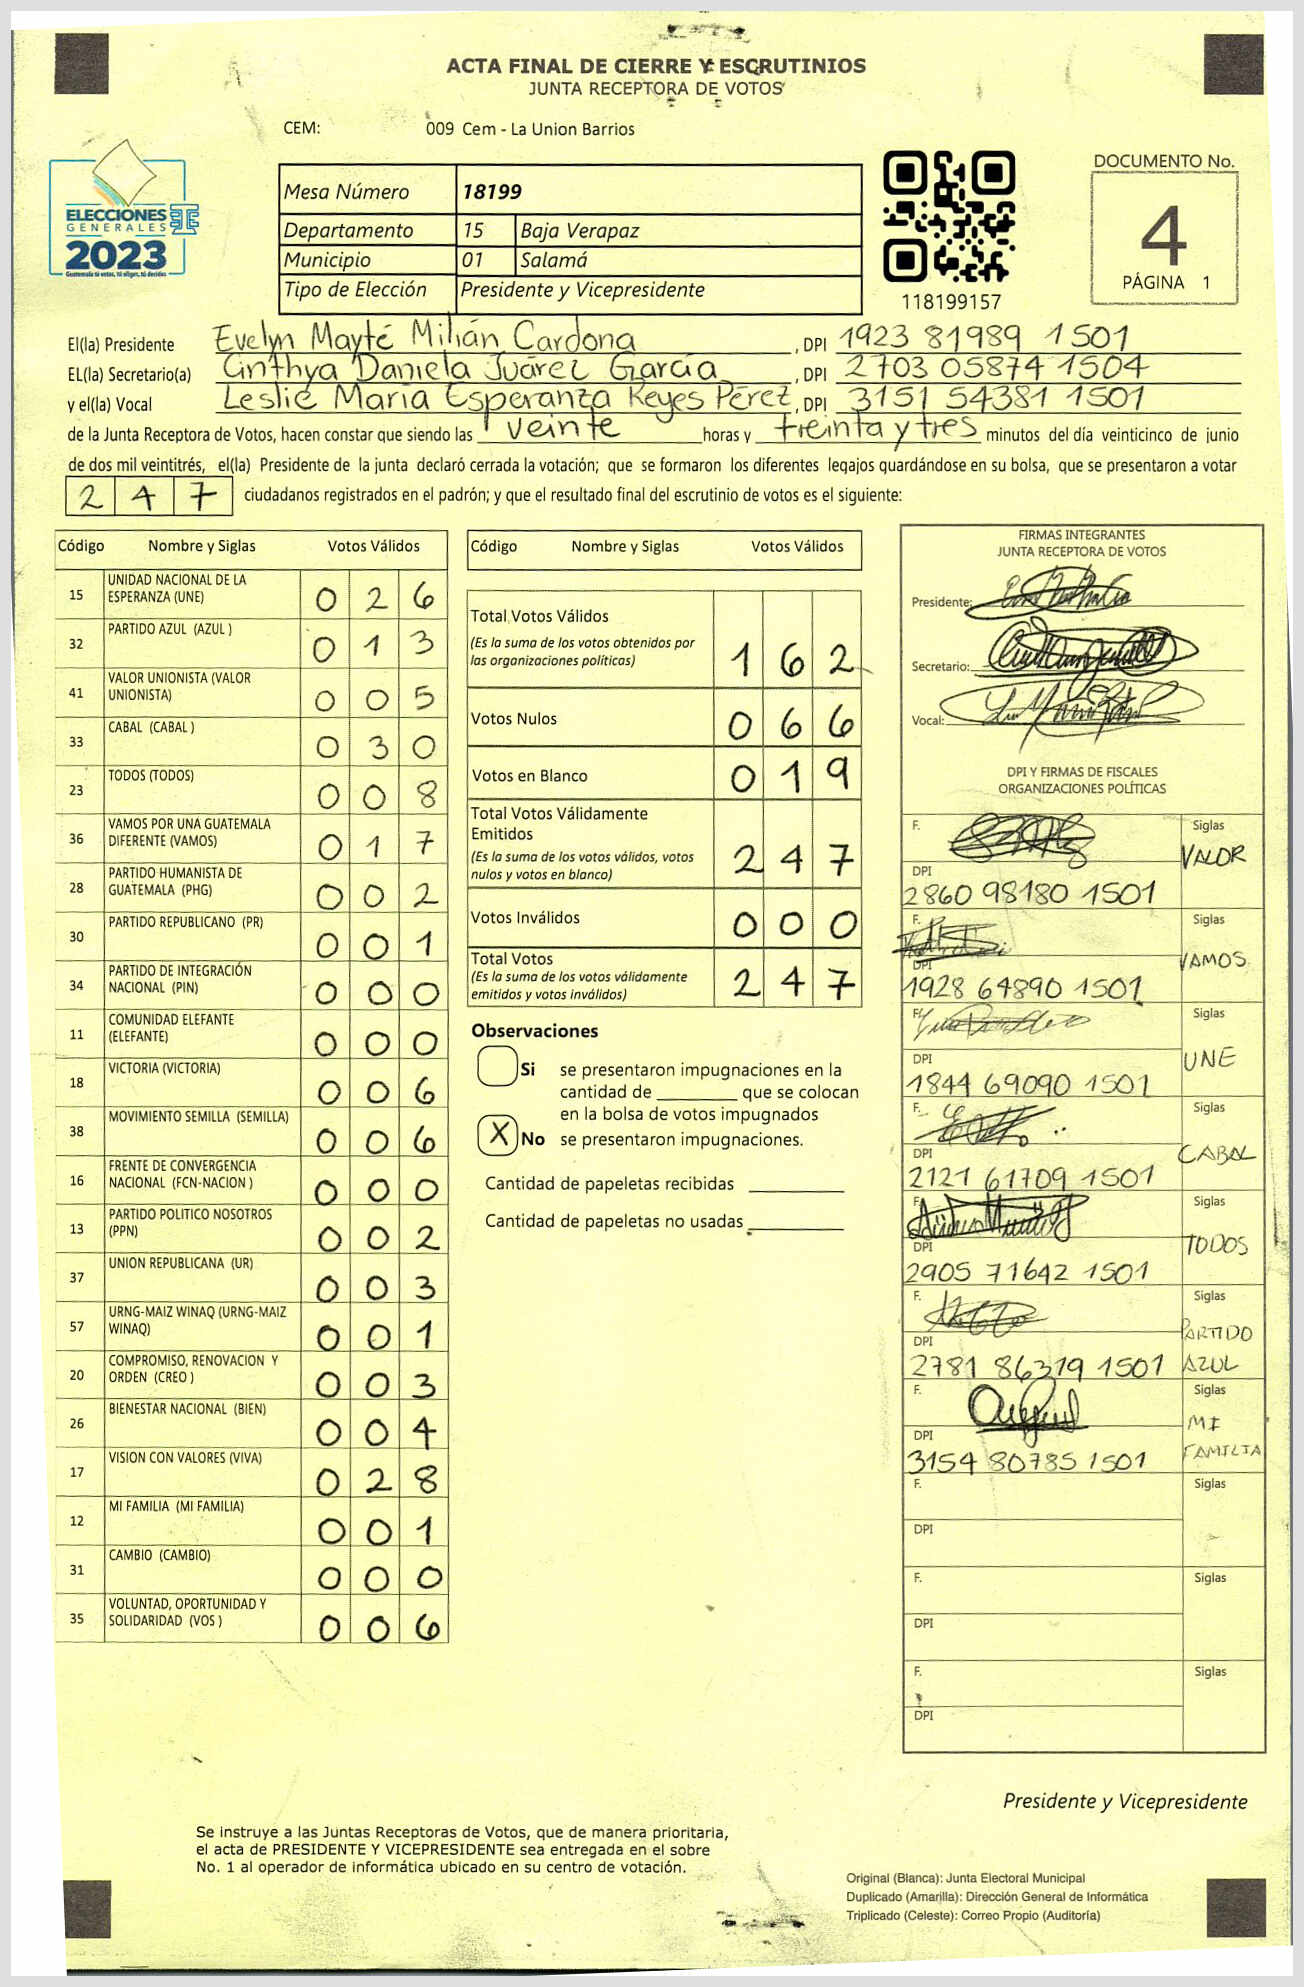 ACTA FINAL DE CIERRE Y ESCRUTINIOS
JUNTA RECEPTORA DE VOTOS
CEM: 009 Cem - La Union Barrios
ELECCIONES
GENERALES
2023
Guatemala tú votas, tú eliges, tú decides
Mesa Número 18199
Departamento 15 Baja Verapaz
Municipio 01 Salamá
Tipo de Elección Presidente y Vicepresidente
118199157
DOCUMENTO No.
4
PÁGINA 1
El(la) Presidente Evelyn Mayté Milián Cardona, DPI 1923 81989 1501
EL(la) Secretario(a) Cinthya Daniela Juárez García, DPI 2703 05874 1504
y el(la) Vocal Leslie María Esperanza Reyes Pérez, DPI 3151 54381 1501
de la Junta Receptora de Votos, hacen constar que siendo las veinte horas y treinta y tres minutos del día veinticinco de junio
de dos mil veintitrés, el(la) Presidente de la junta declaró cerrada la votación; que se formaron los diferentes legajos guardándose en su bolsa, que se presentaron a votar
247 ciudadanos registrados en el padrón; y que el resultado final del escrutinio de votos es el siguiente:
Código Nombre y Siglas Votos Válidos
15 UNIDAD NACIONAL DE LA ESPERANZA (UNE) 0 2 6
32 PARTIDO AZUL (AZUL ) 0 1 3
41 VALOR UNIONISTA (VALOR UNIONISTA) 0 0 5
33 CABAL (CABAL ) 0 3 0
23 TODOS (TODOS) 0 0 8
36 VAMOS POR UNA GUATEMALA DIFERENTE (VAMOS) 0 1 7
28 PARTIDO HUMANISTA DE GUATEMALA (PHG) 0 0 2
30 PARTIDO REPUBLICANO (PR) 0 0 1
34 PARTIDO DE INTEGRACIÓN NACIONAL (PIN) 0 0 0
11 COMUNIDAD ELEFANTE (ELEFANTE) 0 0 0
18 VICTORIA (VICTORIA) 0 0 6
38 MOVIMIENTO SEMILLA (SEMILLA) 0 0 6
16 FRENTE DE CONVERGENCIA NACIONAL (FCN-NACION ) 0 0 0
13 PARTIDO POLITICO NOSOTROS (PPN) 0 0 2
37 UNION REPUBLICANA (UR) 0 0 3
57 URNG-MAIZ WINAQ (URNG-MAIZ WINAQ) 0 0 1
20 COMPROMISO, RENOVACION Y ORDEN (CREO ) 0 0 3
26 BIENESTAR NACIONAL (BIEN) 0 0 4
17 VISION CON VALORES (VIVA) 0 2 8
12 MI FAMILIA (MI FAMILIA) 0 0 1
31 CAMBIO (CAMBIO) 0 0 0
35 VOLUNTAD, OPORTUNIDAD Y SOLIDARIDAD (VOS ) 0 0 6
Código Nombre y Siglas Votos Válidos
Total Votos Válidos
(Es la suma de los votos obtenidos por las organizaciones políticas) 1 6 2
Votos Nulos 0 6 6
Votos en Blanco 0 1 9
Total Votos Válidamente Emitidos
(Es la suma de los votos válidos, votos nulos y votos en blanco) 2 4 7
Votos Inválidos 0 0 0
Total Votos
(Es la suma de los votos válidamente emitidos y votos inválidos) 2 4 7
Observaciones
Si se presentaron impugnaciones en la
cantidad de ________ que se colocan
en la bolsa de votos impugnados
X No se presentaron impugnaciones.
Cantidad de papeletas recibidas
Cantidad de papeletas no usadas
FIRMAS INTEGRANTES
JUNTA RECEPTORA DE VOTOS
Presidente:
Secretario:
Vocal:
DPI Y FIRMAS DE FISCALES
ORGANIZACIONES POLÍTICAS
F. Siglas VALOR
DPI 2860 98180 1501
F. Siglas VAMOS
DPI 1928 64890 1501
F. Siglas UNE
DPI 1844 69090 1501
F. Siglas CABAL
DPI 2121 61709 1501
F. Siglas TODOS
DPI 2905 71642 1501
F. Siglas PARTIDO AZUL
DPI 2781 86319 1501
F. Siglas MI FAMILIA
DPI 3154 80785 1501
F. Siglas
DPI
F. Siglas
DPI
F. Siglas
DPI
Presidente y Vicepresidente
Se instruye a las Juntas Receptoras de Votos, que de manera prioritaria,
el acta de PRESIDENTE Y VICEPRESIDENTE sea entregada en el sobre
No. 1 al operador de informática ubicado en su centro de votación.
Original (Blanca): Junta Electoral Municipal
Duplicado (Amarilla): Dirección General de Informática
Triplicado (Celeste): Correo Propio (Auditoría)